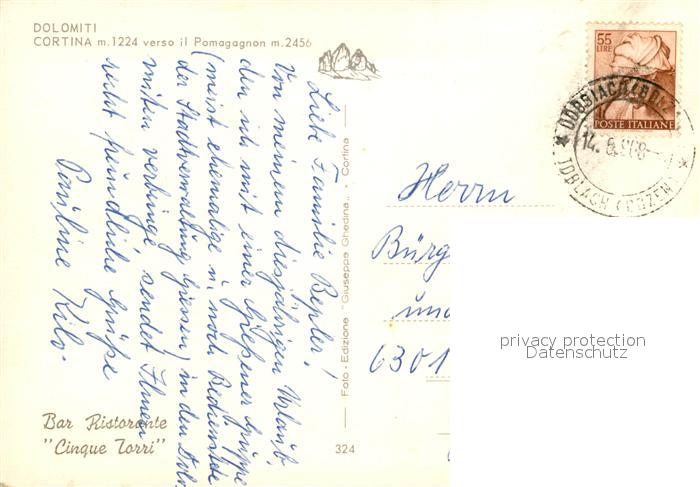 DOLOMITI
CORTINA m.1224 verso il Pomagagnon m.2456
Liebe Familie Bepler!
Von meinem diesjährigen Urlaub,
den ich mit einer Gießener Gruppe
(meist ehemalige u. noch Bedienstete
der Stadtverwaltung Giessen) in den Dolo-
miten verbringe, sendet Ihnen
recht freundliche Grüße
Pauline Kilo
Foto - Edizione "Giuseppe Ghedina" - Cortina
Bar Ristorante
"Cinque Torri"
324
55
LIRE
POSTE ITALIANE
DOBBIACO (BOLZ
14. 6.
TOBLACH (BOZEN)
Herrn
Bürg
und
6301
privacy protection
Datenschutz